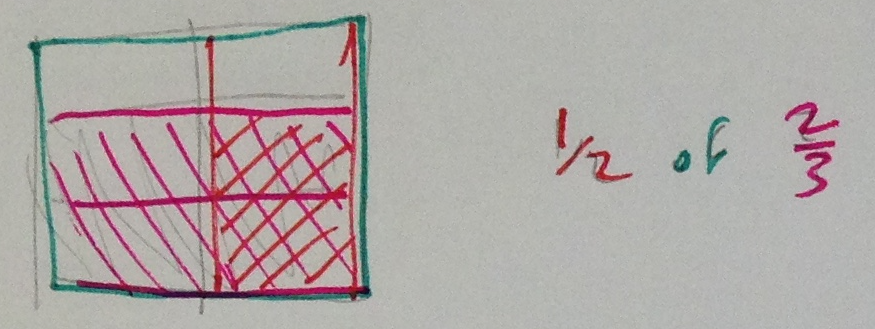 1/2 of 2/3